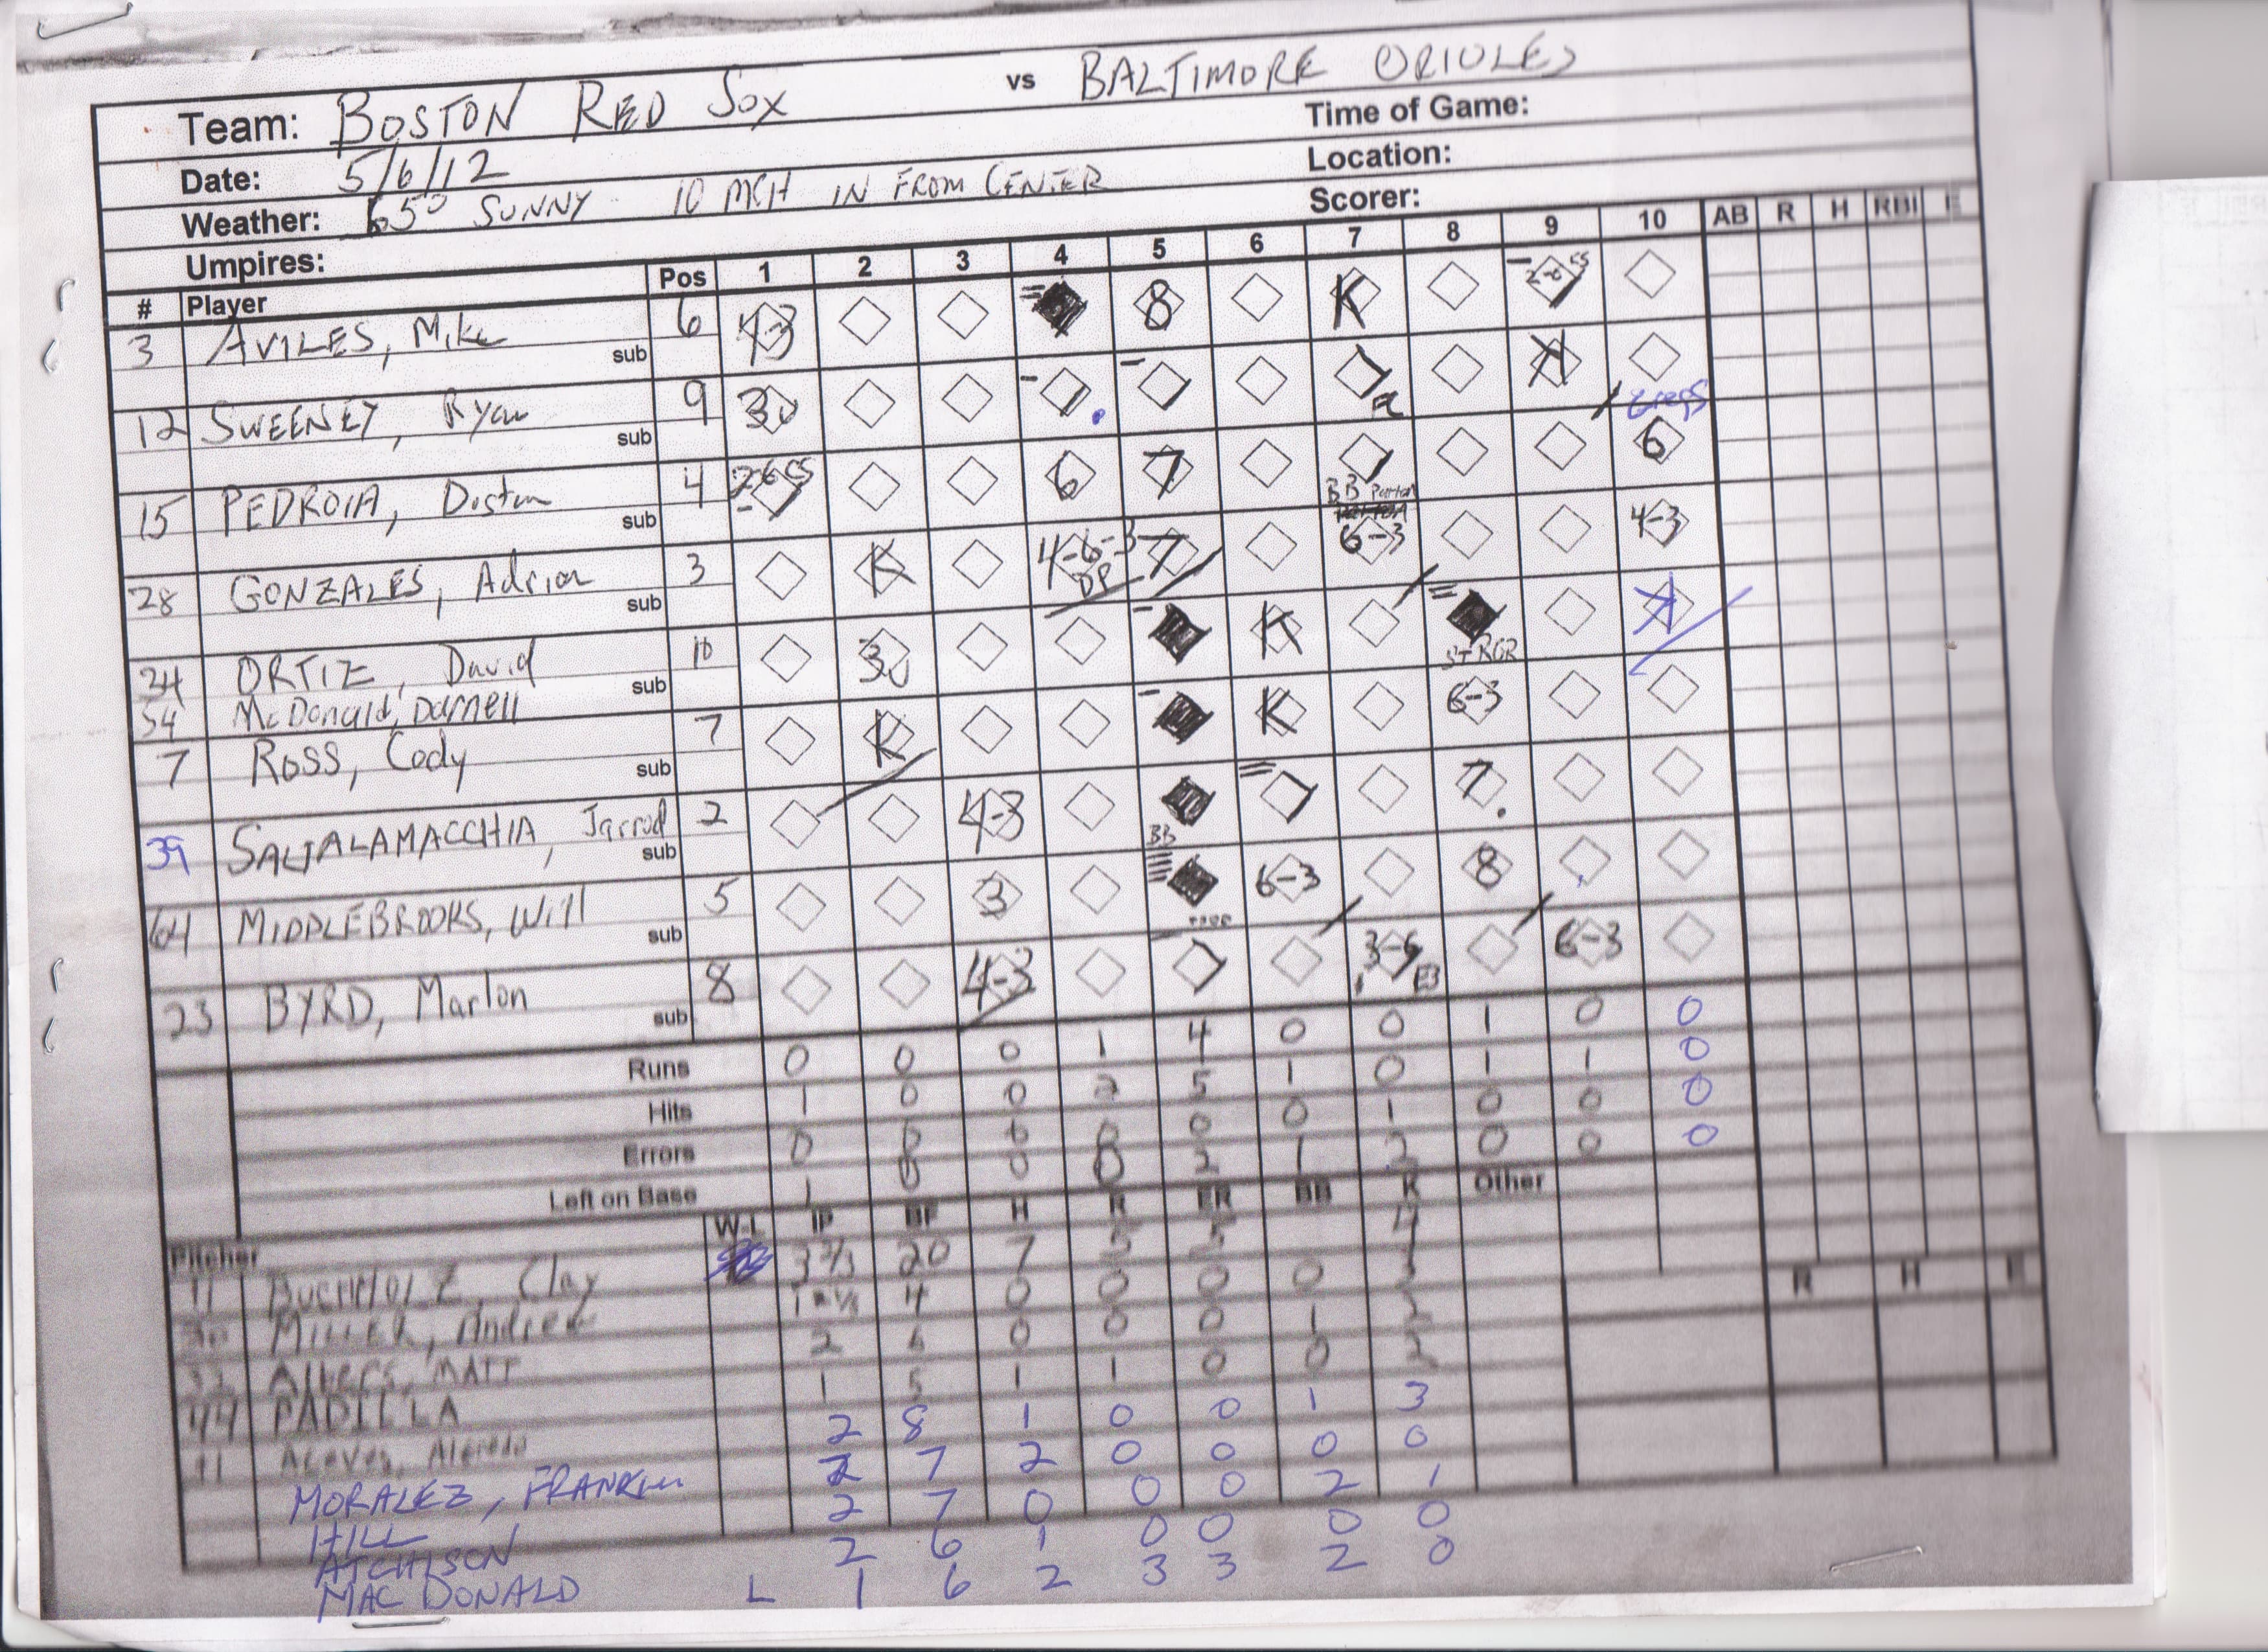 Team: BOSTON RED SOX vs BALTIMORE ORIOLES
Date: 5/6/12 Time of Game:
Weather: 65° SUNNY 10 MCH IN FROM CENTER Location:
Umpires: Scorer:
# Player Pos 1 2 3 4 5 6 7 8 9 10 AB R H RBI E
3 AVILES, Mike sub 6 4-3 8 K 2-6 CS
12 SWEENEY, Ryan sub 9 3U K
15 PEDROIA, Dustin sub 4 2-6 CS 6 7 BB Patton 6
28 GONZALES, Adrian sub 3 K 4-6-3 DP 7 6-3 4-3
34 ORTIZ, David sub 10 3U K ST RGR K
54 McDonald, Darnell
7 ROSS, Cody sub 7 K K 6-3
39 SALTALAMACCHIA, Jarrod sub 2 4-3 BB 7
64 MIDDLEBROOKS, Will sub 5 3 6-3 8
23 BYRD, Marlon sub 8 4-3 3-6 E3 6-3
Runs 0 0 0 1 4 0 0 1 0 0
Hits 1 0 0 2 5 1 0 1 1 0
Errors 0 0 0 0 0 0 1 0 0 0
Left on Base 1 0 0 0 2 1 2 0 0 0
Pitcher W-L IP BF H R ER BB K Other
11 BUCHHOLZ, Clay 3 2/3 20 7 5 5 4
30 MILLER, Andrew 4 0 0 0 0 3
32 Albers, MATT 2 6 0 0 0 1 2
44 PADILLA 1 5 1 1 0 0 2
91 Aceves, Alfredo 2 8 1 0 0 1 3
MORALEZ, FRANKLIN 2 7 2 0 0 0 0
HILL 2 7 0 0 0 2 1
ATCHISON 2 6 1 0 0 0 0
MAC DONALD L 1 6 2 3 3 2 0
R H E